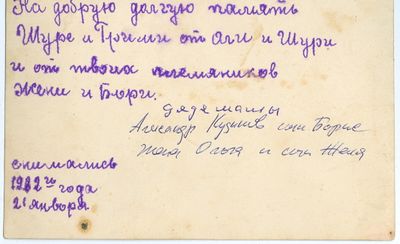 На добрую долгую память
Шуре и Грише от Яги и Шуры
и от твоих племяников
Жени и Бори.
дяде
Александр Кузьмив сын Борис
жена Ольга и сын Женя
снимались
1982 го года
21 января